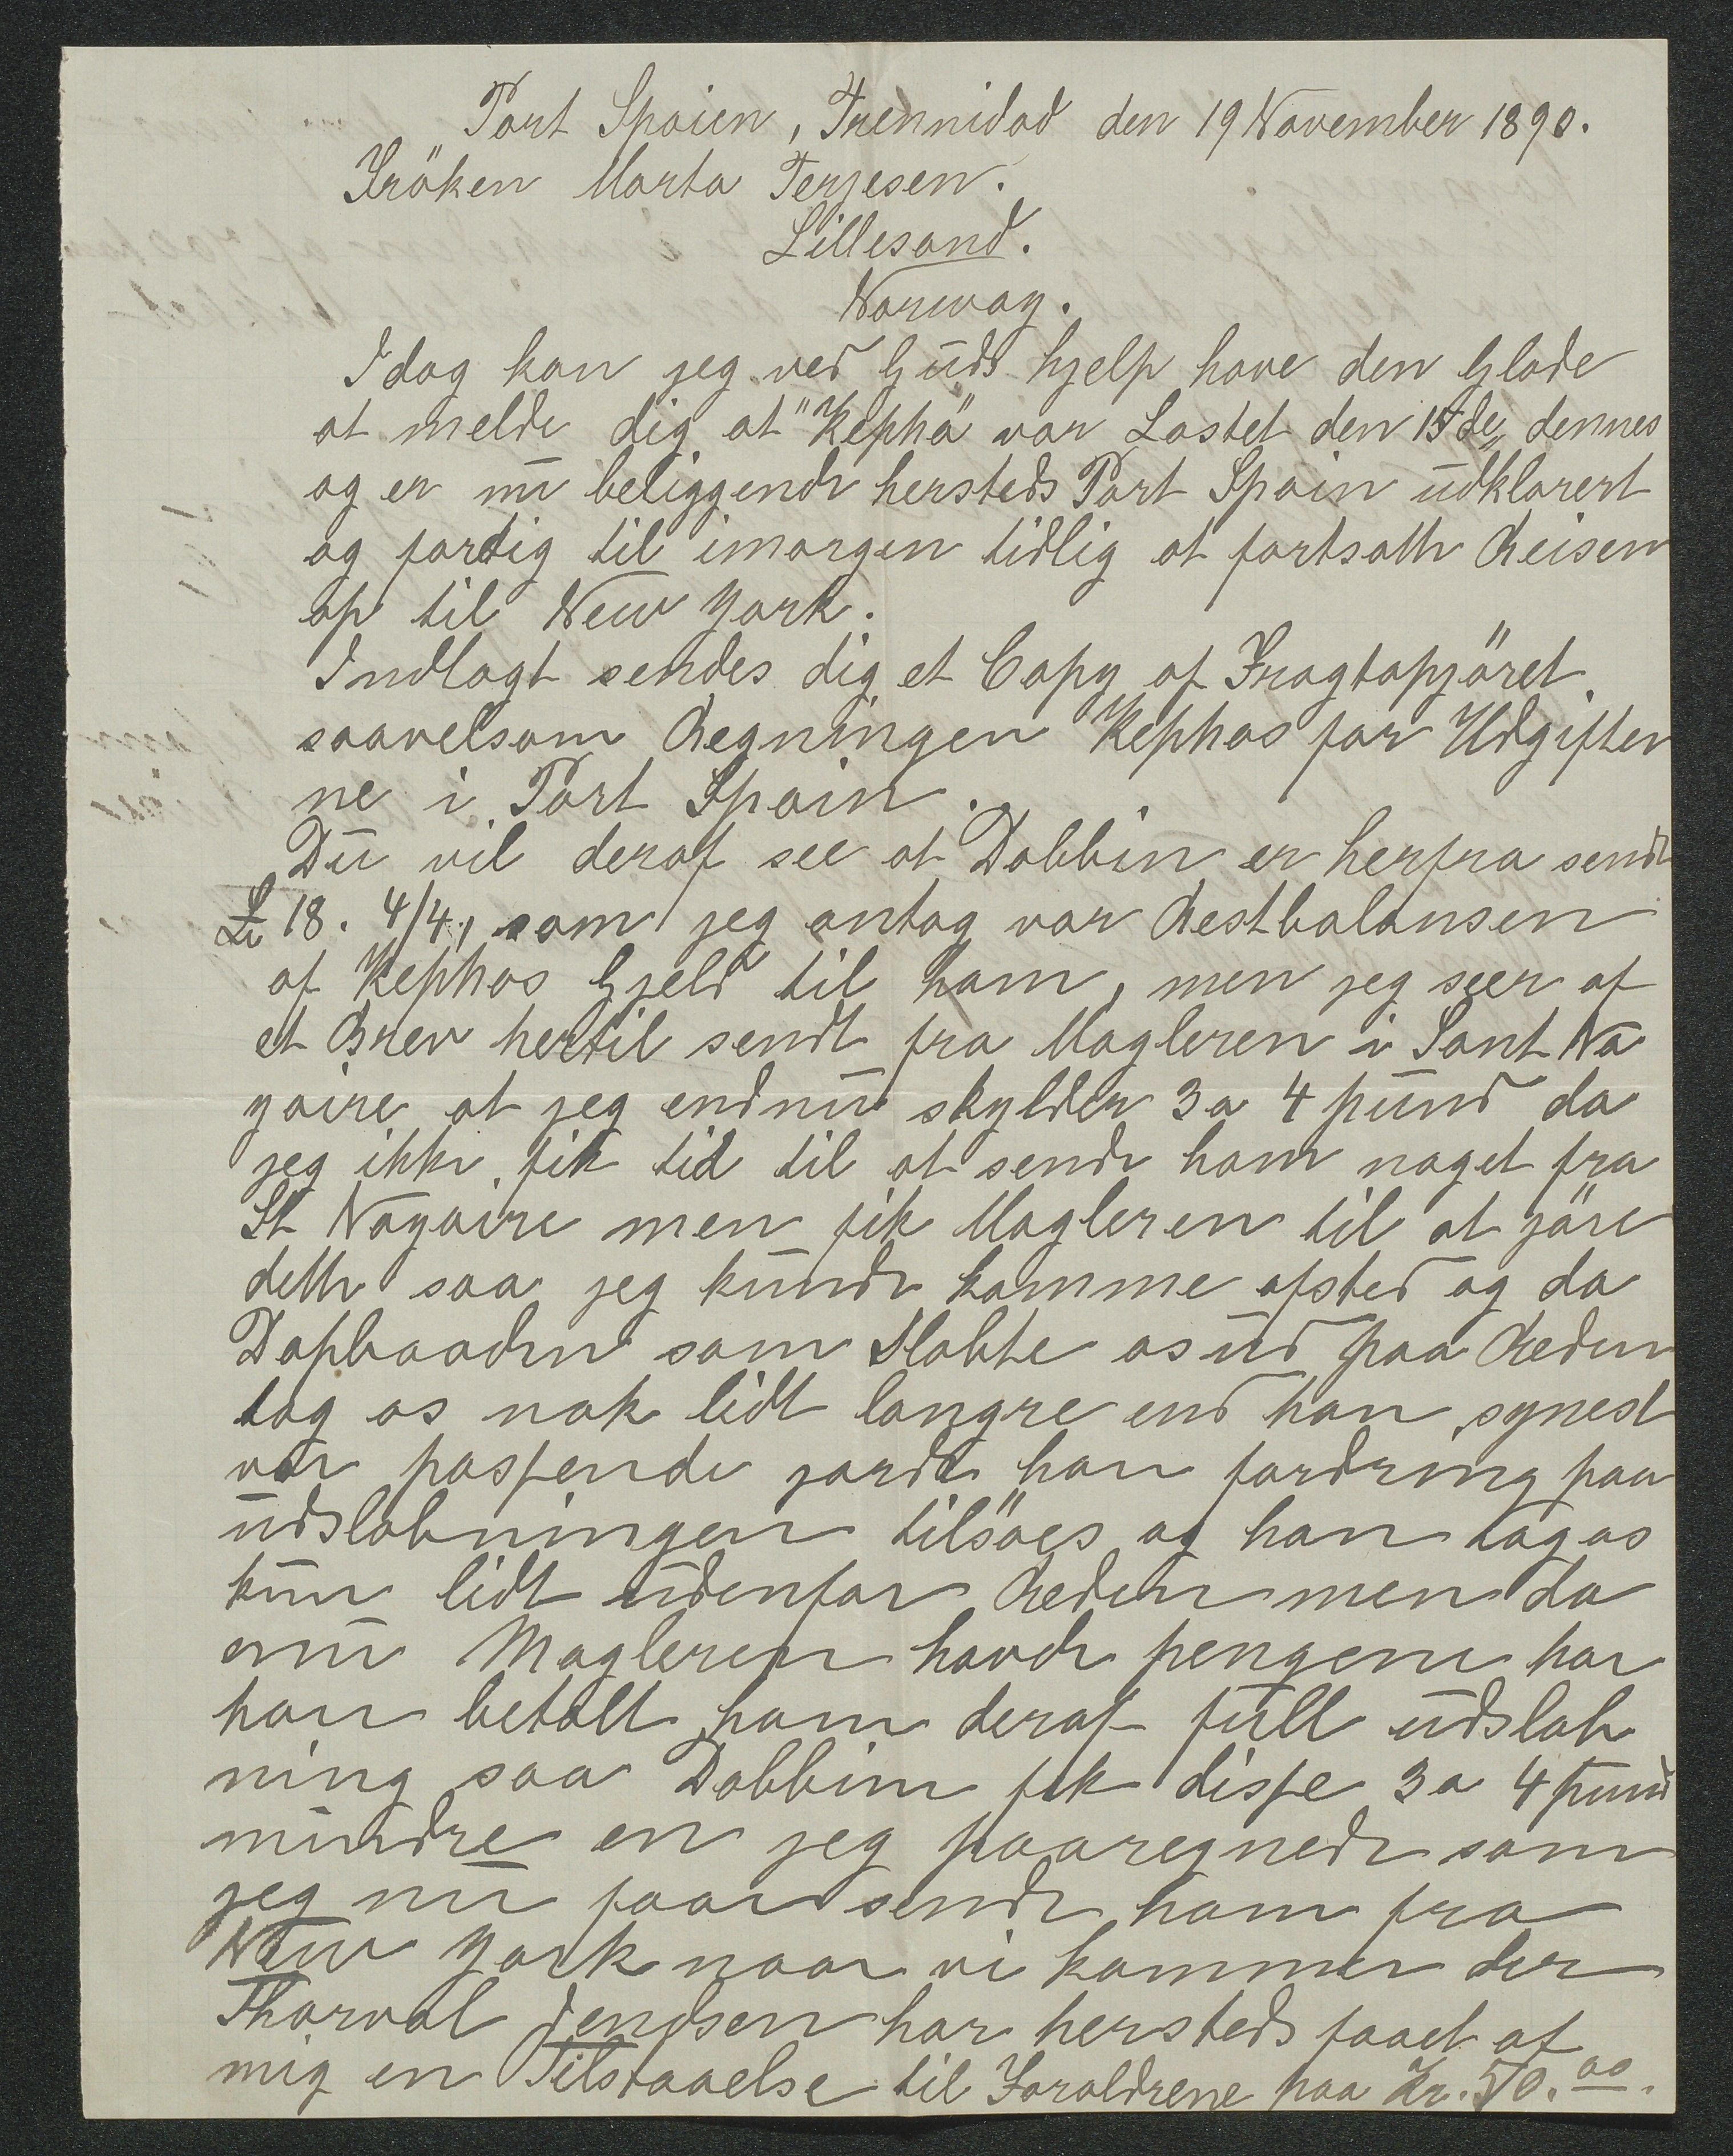 Port Spaien, Trennidad den 19 November 1890.
Fröken Marta Terjesen.
Lillesand.
Norway.
Idag kan jeg ved Guds hjelp have den Glade
at melde dig at "Kepha" var Lastet den 15de dennes
og er nu beliggende hersteds Port Spain udklarert
og fardig til imorgen tidlig at fortsatte Reisen
op til New York.
Indlagt sendes dig et Copy af Fragtopjöret
saavelsom Regningen Kephas for Udgifter
ne i Port Spain.
Du vil deraf see at Dobbin er herfra sendt
£ 18. 4/4, som jeg antog var Restbalansen
af Kephas Gjeld til ham, men jeg seer af
et Brev hertil sendt fra Magleren i Sant Na
zaire at jeg endnu skylder 3 a 4 pund da
jeg ikke fik tid til at sende ham noget fra
St Nazaire men fik Magleren til at jöre
dette saa jeg kunde komme afsted og da
Dapbaaden som Slabte os ud paa Reden
tog os nok lidt langre end han synest
var passende jorde han fordring paa
udslabningen tilsöes og han tog os
kun lidt udenfor Reden men da
nu Magleren havde pengene har
han betalt ham deraf full udslab
ning saa Dobbin fik disse 3 a 4 pund
mindre en jeg paaregnede som
jeg nu faar sende ham fra
New York naar vi kommer der
Thorval Jendsen har hersteds faaet af
mig en Tilstaaelse til Foraldrene paa Kr. 50.00.